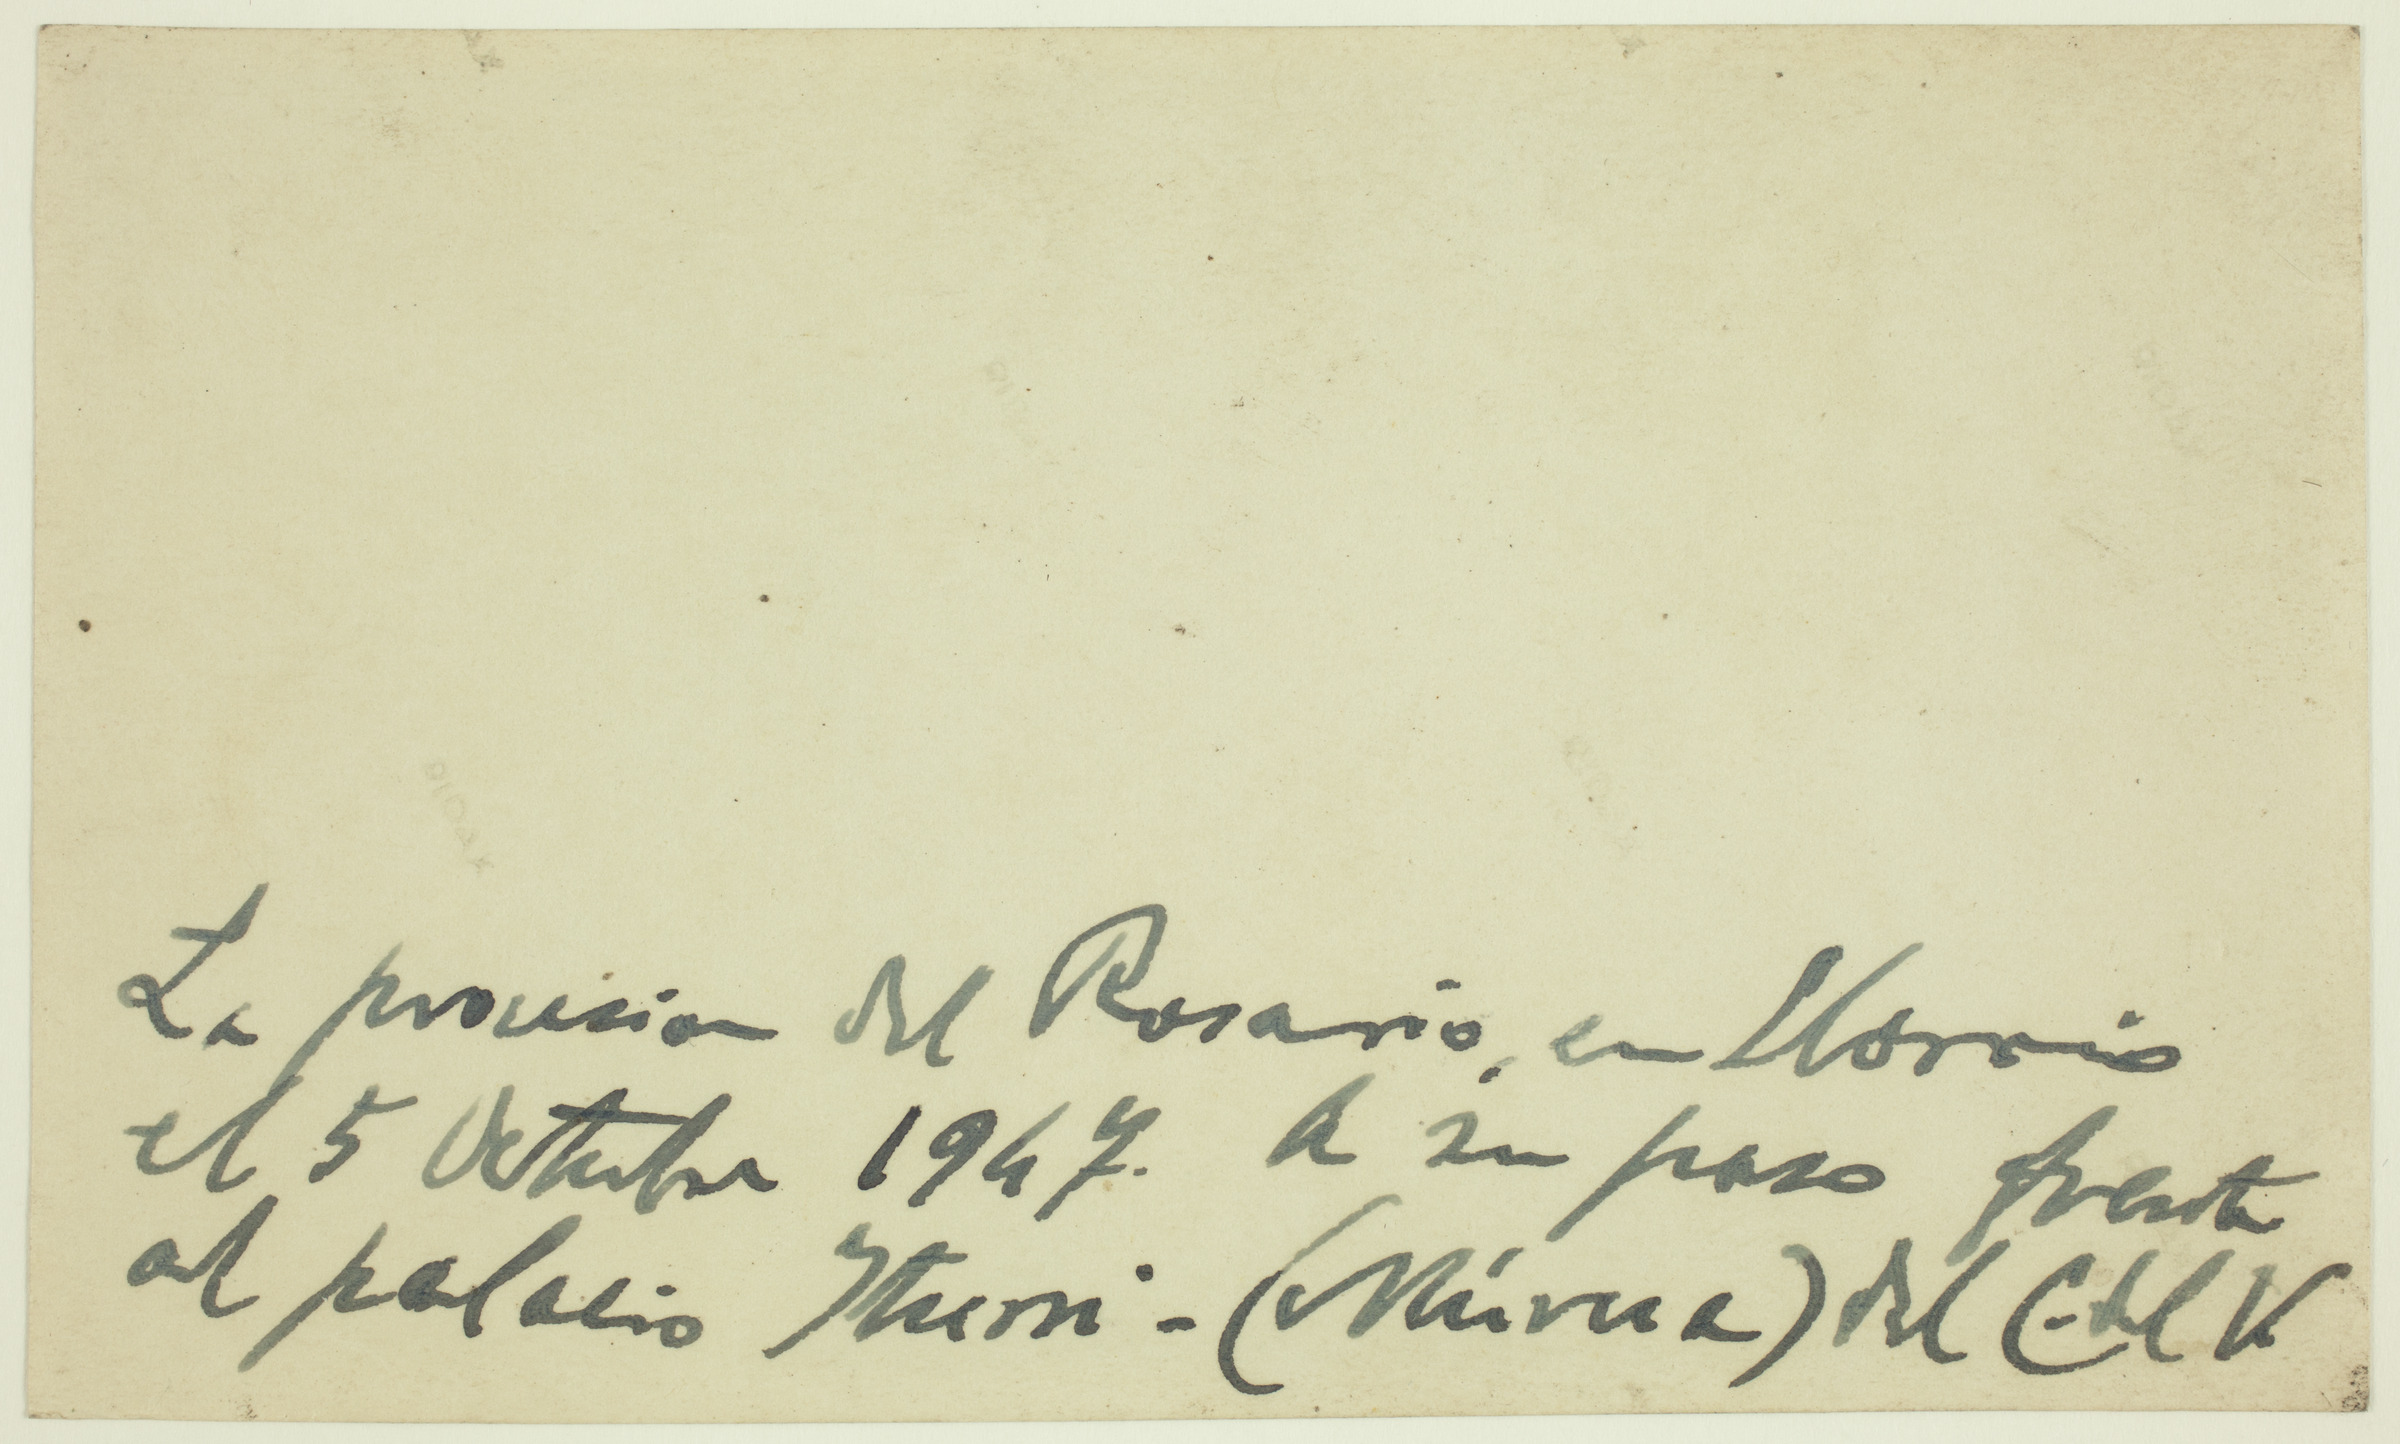 La procesion del Rosario, en Elorrio
el 5 Octubre 1947. A su paso frente
al palacio Yturri - (Múrua) del C. del V